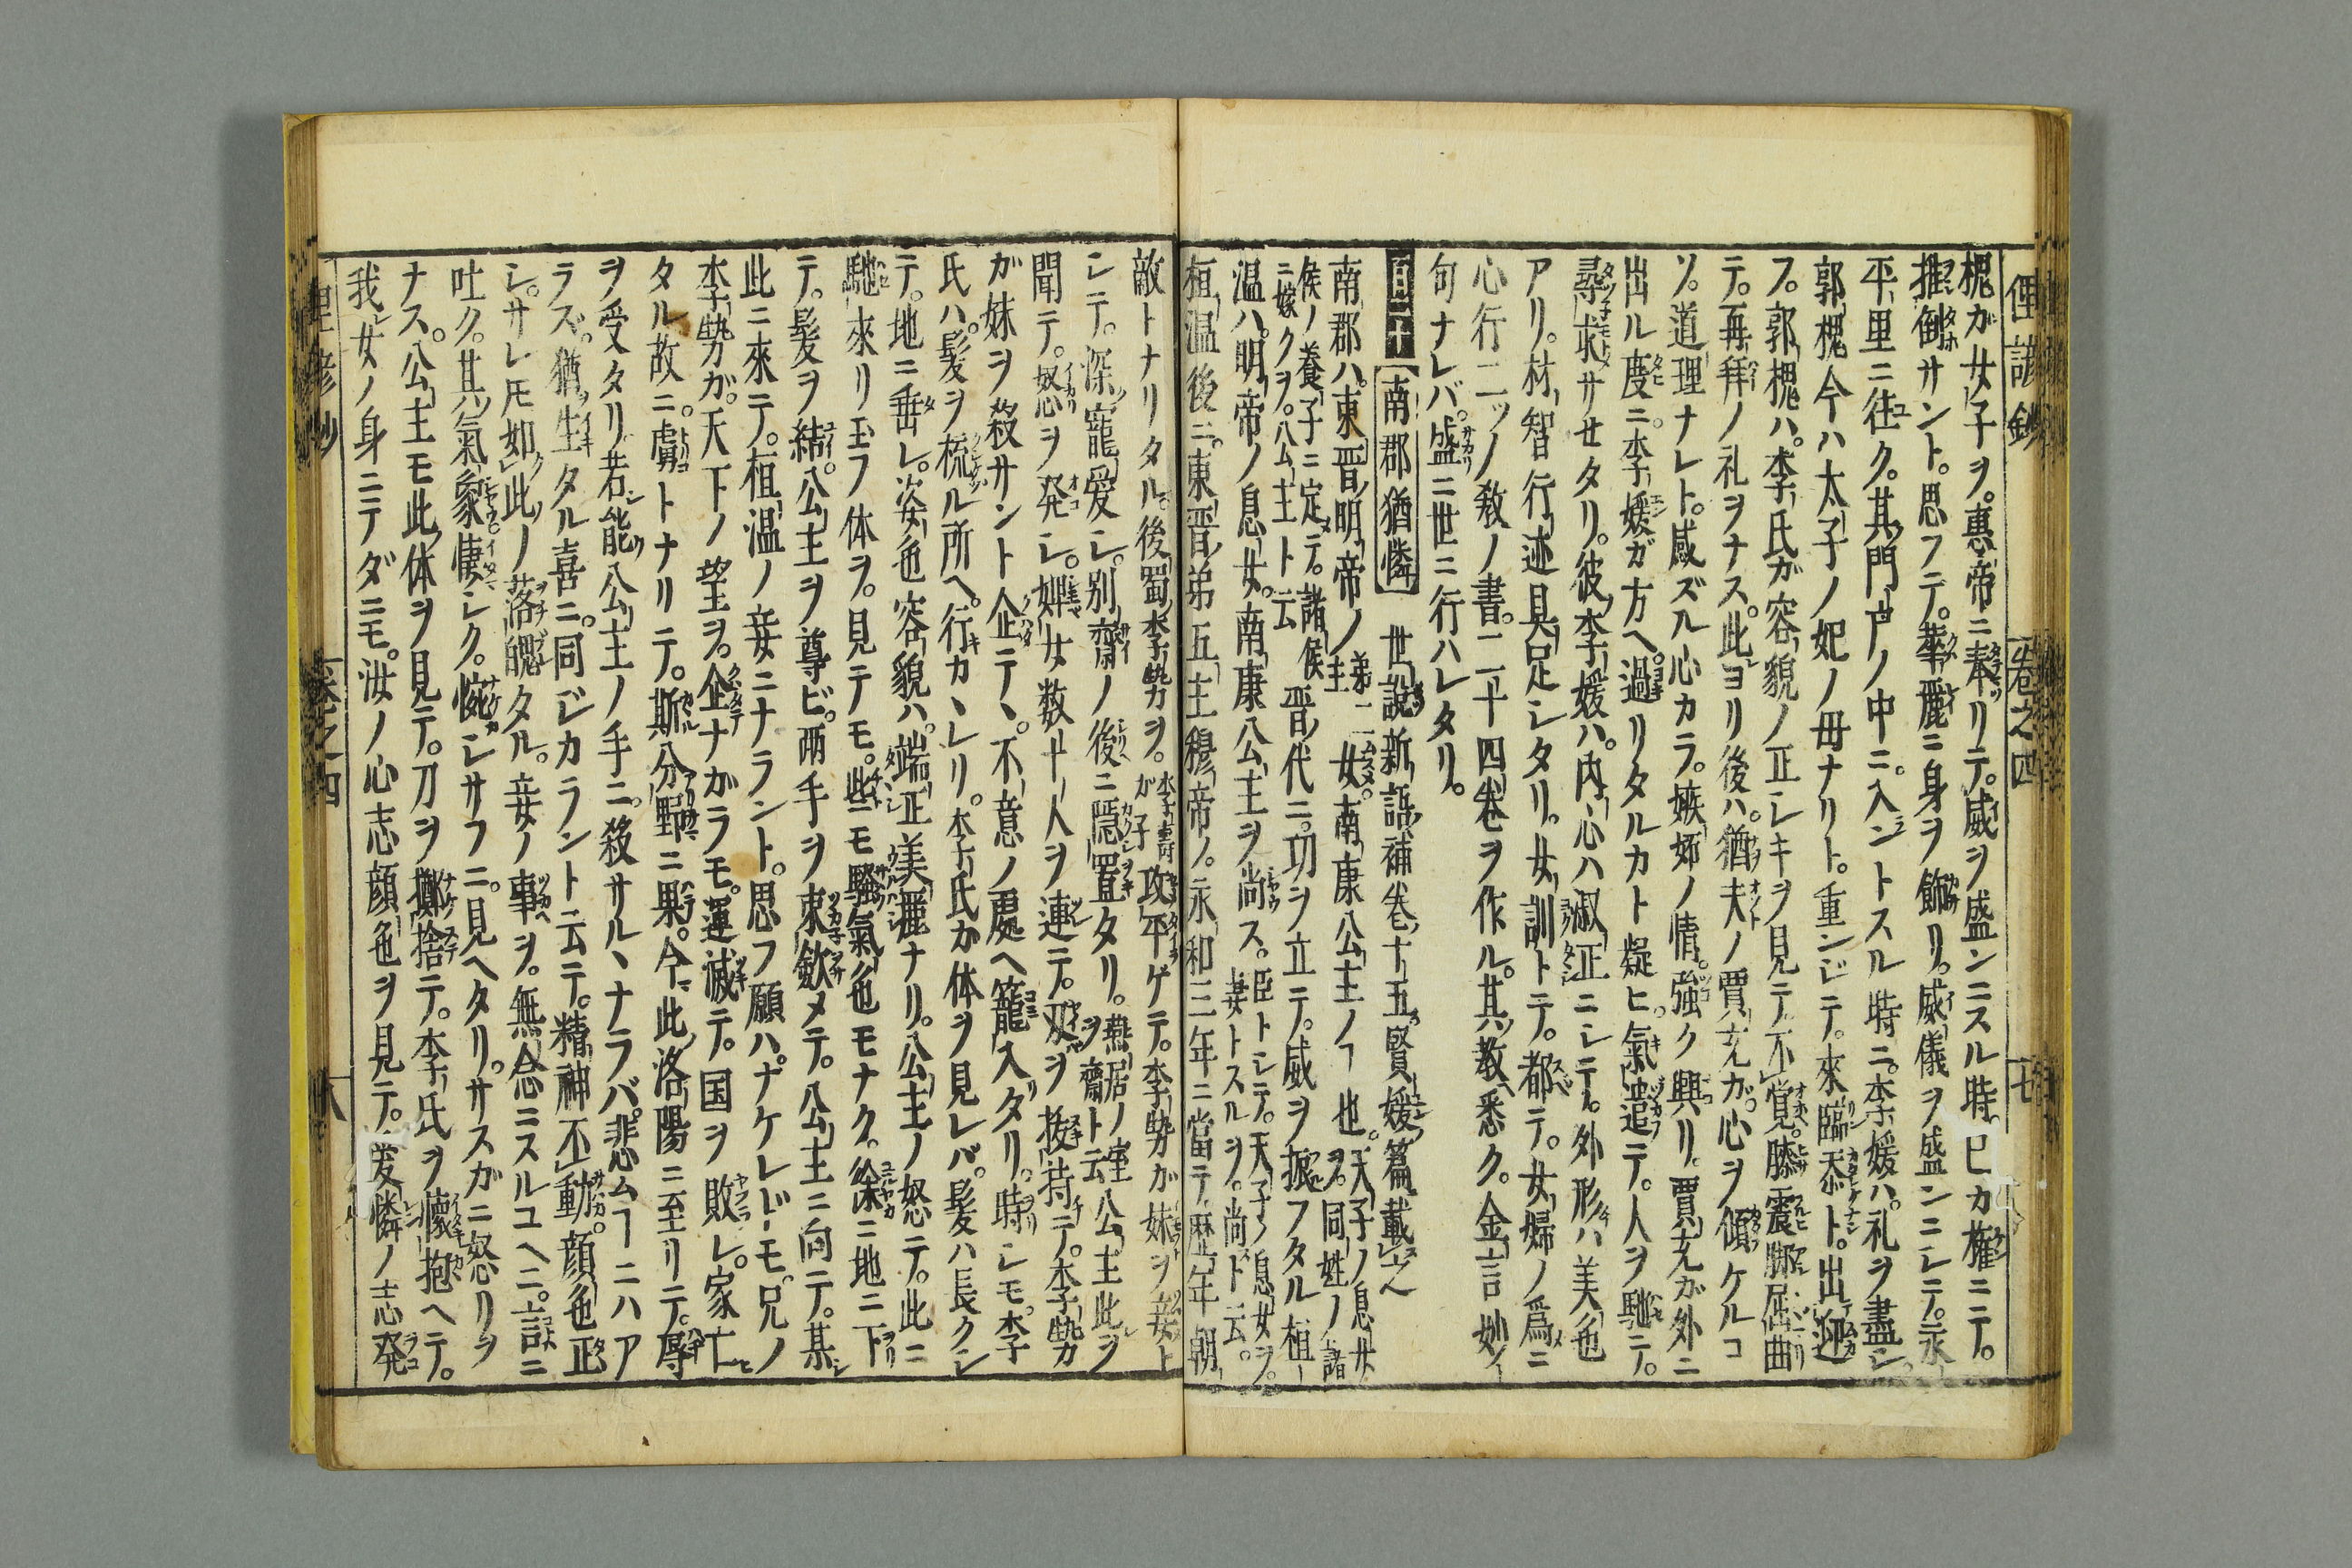 俚諺鈔 卷之四 七
槐ガ女子ヲ。惠帝ニ奉リテ。威ヲ盛ンニスル時。已カ權ニテ。
推倒サント。思フテ。華麗ニ身ヲ飾リ。威儀ヲ盛ンニシテ。永
平里ニ往ク。其門戸ノ中ニ。入ントスル時ニ。李媛ハ。礼ヲ盡シ。
郭槐今ハ太子ノ妃ノ母ナリト。重ンジテ。來臨忝ト。出迎
フ。郭槐ハ。李氏ガ容貌ノ正シキヲ見テ。不覚。膝震脚屈曲
テ。再拜ノ礼ヲナス。此ヨリ後ハ。猶夫ノ賈充カ。心ヲ傾ケルコ
ソ。道理ナレト。感ズル心カラ。嫉妬ノ情。強ク興リ。賈充ガ外ニ
出ル度ニ。李媛ガ方ヘ。過リタルカト疑ヒ。氣遣テ。人ヲ馳テ。
尋求サセタリ。彼李媛ハ。内心ハ淑正ニシテ。外形ハ美色
アリ。材智行迹具足シタリ。女訓トテ。都テ。女婦ノ爲ニ
心行二ツノ教ノ書。二十四卷ヲ作ル。其教悉ク。金言妙
句ナレバ。盛ニ世ニ行ハレタリ。
百二十 南郡猶憐 世說新語補卷十五。賢媛篇載之
南郡ハ。東晋明帝ノ 第二主 女。南康公主ノヿ也。天子ノ息女ヲ。同姓ノ諸
侯ノ養子ニ定テ。諸侯ニ嫁クヲ。公主ト云 晋代ニ。功ヲ立テ。威ヲ振フタル桓
温ハ。明帝ノ息女。南康公主ヲ尚ス。臣トシテ。天子ノ息女ヲ。妻トスルヲ。尚ト云。
桓温後ニ。東晋第五主穆帝ノ。永和三年ニ當テ。歴年朝
敵トナリタル。後蜀李勢ヲ。李壽ガ子 攻平ゲテ。李勢ガ妹ヲ妾ト
シテ。深寵愛シ。別齋ノ後ニ隠置タリ。燕居ノ室ヲ齋ト云 公主此ヲ
聞テ。怒ヲ発シ。嬶女数十人ヲ連テ。刃ヲ抜持テ。李勢カ
ガ妹ヲ殺サント企テヽ。不意ノ處ヘ籠入タリ。時シモ。李
氏ハ。髪ヲ梳ル所ヘ。行カヽレリ。李氏カ体ヲ見レバ。髪ハ長クシ
テ。地ニ垂レ。姿色容貌ハ。端正美麗ナリ。公主ノ怒テ。此ニ
馳來リ玉フ体ヲ。見テモ。些ニモ騷氣色モナク。徐ニ地ニ下
テ。髪ヲ結。公主ヲ尊ビ。兩手ヲ束歛メテ。公主ニ向テ。某
此ニ來テ。桓温ノ妾ニナラント。思フ願ハ。ナケレドモ。兄ノ
李勢ガ。天下ノ望ヲ。企ナガラモ。運滅テ。国ヲ敗シ。家亡
タル故ニ。虜トナリテ。斯分野ニ果。今此洛陽ニ至リテ。辱
ヲ受タリ。若能公主ノ手ニ。殺サルヽナラバ。悲ムヿニハア
ラズ。猶生タル喜ニ。同ジカラント云テ。精神不動。顔色正
シ。サレモ如此ノ落魄タル。妾ノ事ヲ。無念ニスルユヘニ。言ニ
吐ク。其氣象悽シク。惋シサフニ。見ヘタリ。サスガニ怒リヲ
ナス。公主モ此体ヲ見テ。刀ヲ擲捨テ。李氏ヲ懷抱ヘテ。
我女ノ身ニテダニモ。汝ノ心志顔色ヲ見テ。愛憐ノ志発
俚諺鈔 卷之四 八